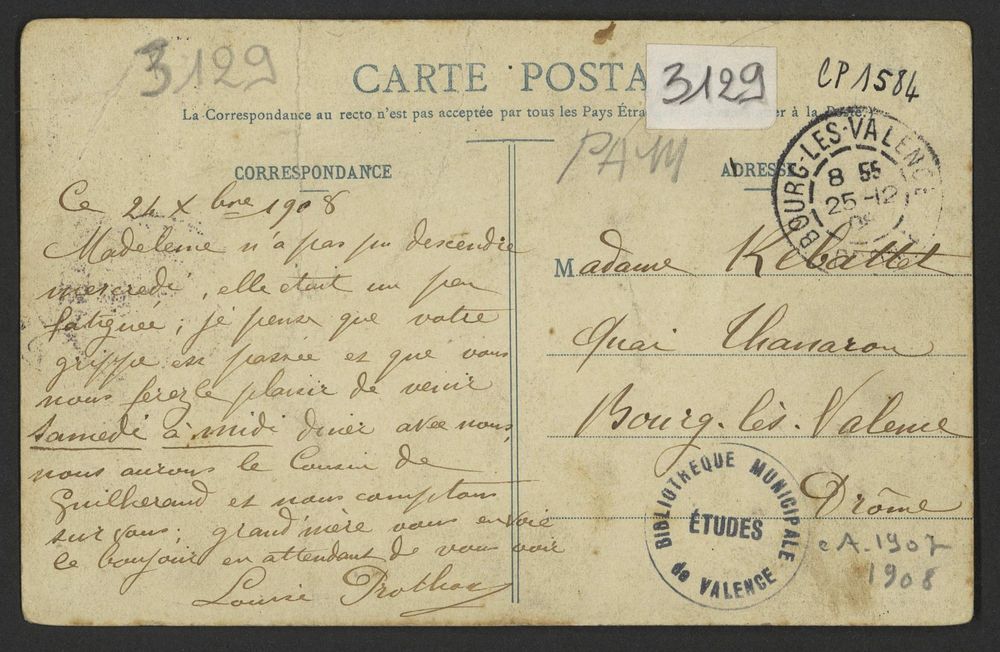 3129
CARTE POSTA
3129
CP 1584
La Correspondance au recto n'est pas acceptée par tous les Pays Étra er à la Poste.)
PAM
CORRESPONDANCE
ADRESSE
BOURG-LES-VALENCE
8 55
25-12
Ce 24 Xbre 1908
Madeleine n'a pas pu descendre
mercredi, elle etait un peu
fatiguée; je pense que votre
grippe est passée et que vous
nous ferez le plaisir de venir
Samedi à midi diner avec nous,
nous aurons le Cousin de
Guilherand et nous comptons
sur vous; grand'mère vous envoie
le bonjour en attendant de vous voir
Louise Prothon
Madame Rebattet
Quai Thannaron
Bourg-lès-Valence
Drôme
BIBLIOTHEQUE MUNICIPALE
ÉTUDES
de VALENCE
cA. 1907
1908